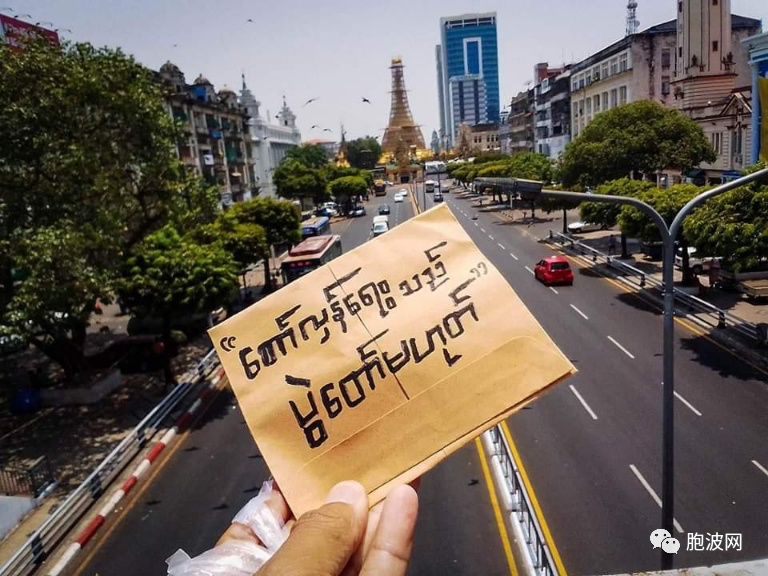 “တော်လှန်ရေး သည်
ပွဲတော်မဟုတ်”
胞波网